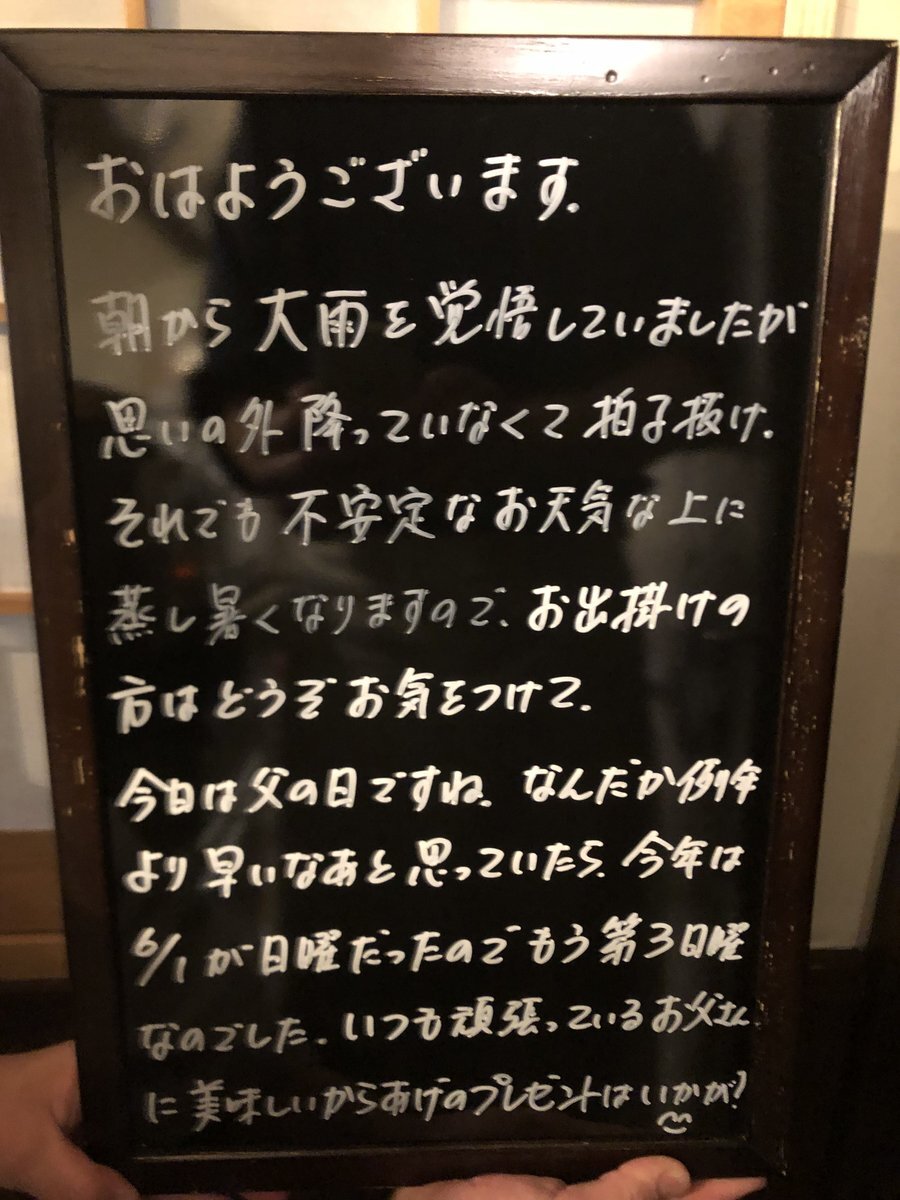 おはようございます.
朝から大雨を覚悟していましたが
思いの外降っていなくて拍子抜け.
それでも不安定なお天気な上に
蒸し暑くなりますので、お出掛けの
方はどうぞお気をつけて.
今日は父の日ですね. なんだか例年
より早いなあと思っていたら、今年は
6/1が日曜だったのでもう第3日曜
なのでした. いつも頑張っているお父さん
に美味しいからあげのプレゼントはいかが?